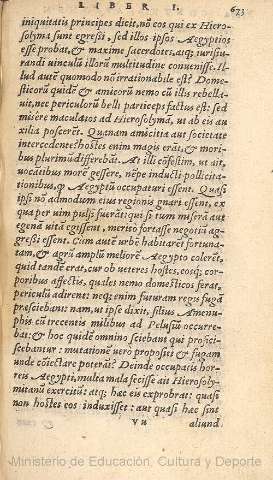 LIBER I.
623
iniquitatis principes dicit, nō eos qui ex Hiero-
solyma sunt egressi, sed illos ipsos Aegyptios
esse probat, & maxime sacerdotes, atq; iurisiu-
randi uinculū illorū multitudine conuenisse. Il-
lud autē quomodo nō irrationabile est? Domes-
ticorū quidē & amicorū nemo cū illis rebellau-
it, nec periculorū belli particeps factus est: sed
misere maculatos ad Hierosolymā, ut ab eis au
xilia poscerēt. Quanam amicitia aut societate
intercedente: hostes enim magis erāt, & mori-
bus plurimū differebāt. At illi cōfestim, ut ait,
uocātibus morē gessere, nēpe inducti pollicita-
tionibus, q̄ Aegyptū occupaturi essent. Quasi
ipsi nō admodum eius regionis gnari essent, ex
qua per uim pulsi fuerāt: qui si tum miserā aut
egenā uitā egissent, merito fortasse negotiū ag-
gressi essent. Cum autē urbē habitarēt fortuna-
tam, & agrū amplū meliorē Aegypto colerēt,
quid tandē erat, cur ob ueteres hostes, eosq; cor-
poribus affectis, quales nemo domesticos ferat,
periculū adirent: neq; enim futuram regis fugā
presciebant: nam, ut ipse dixit, filius Amenu-
phis cū trecentis milibus ad Pelusiū occurre-
bat: & hoc quidē omnino sciebant qui profici-
scebantur: mutationē uero propositi & fugam
unde cōiectare poterāt? Deinde occupatis hor-
reis Aegypti, multa mala fecisse ait Hierosoly-
mitanū exercitū: atq; hæc eis exprobrat: quasi
non hostes eos induxisset: aut quasi hæc sint
Vu
aliund.
Ministerio de Educación, Cultura y Deporte